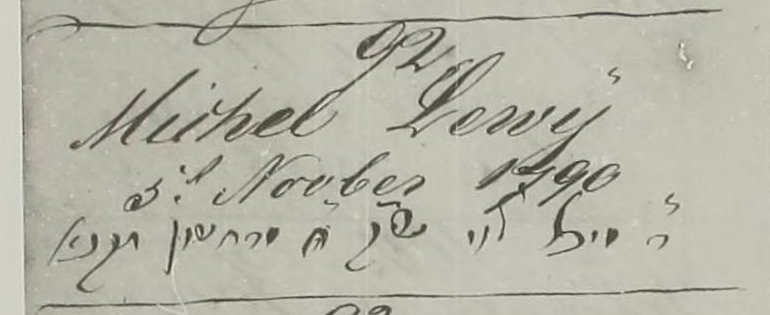 92
Michel Lewij
Novber 1790
ר׳ מיכל לוי ש״ק מרחשון תקנ״א